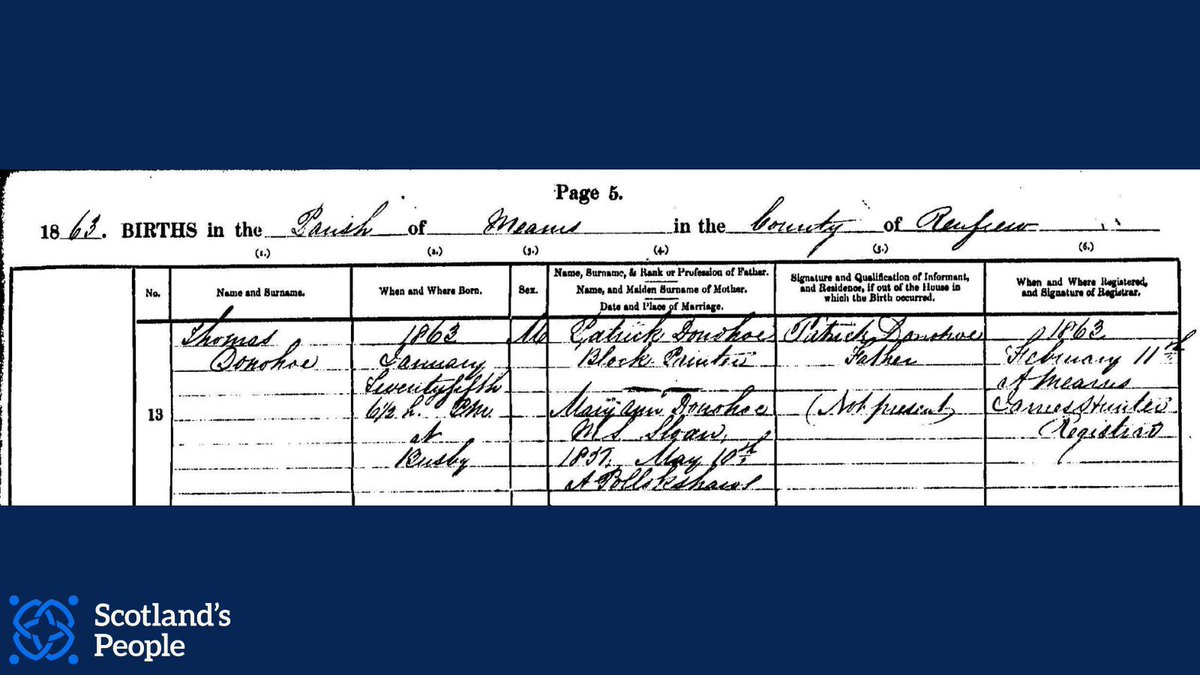 Page 5.
1863. BIRTHS in the Parish of Mearns in the County of Renfrew
(1.) (2.) (3.) (4.) (5.) (6.)
No.
Name and Surname.
When and Where Born.
Sex.
Name, Surname, & Rank or Profession of Father.
Name, and Maiden Surname of Mother.
Date and Place of Marriage.
Signature and Qualification of Informant,
and Residence, if out of the House in
which the Birth occurred.
When and Where Registered,
and Signature of Registrar.
13
Thomas
Donohoe
1863
January
Twentyfifth
6½ h. P.M.
at
Busby
M
Patrick Donohoe
Block Printer
Mary Ann Donohoe
M.S. Sloan
1857. May 10th
At Pollokshaws
Patrick Donohoe
Father
(Not present)
1863
February 11th
At Mearns
James Hunter
Registrar
Scotland's
People